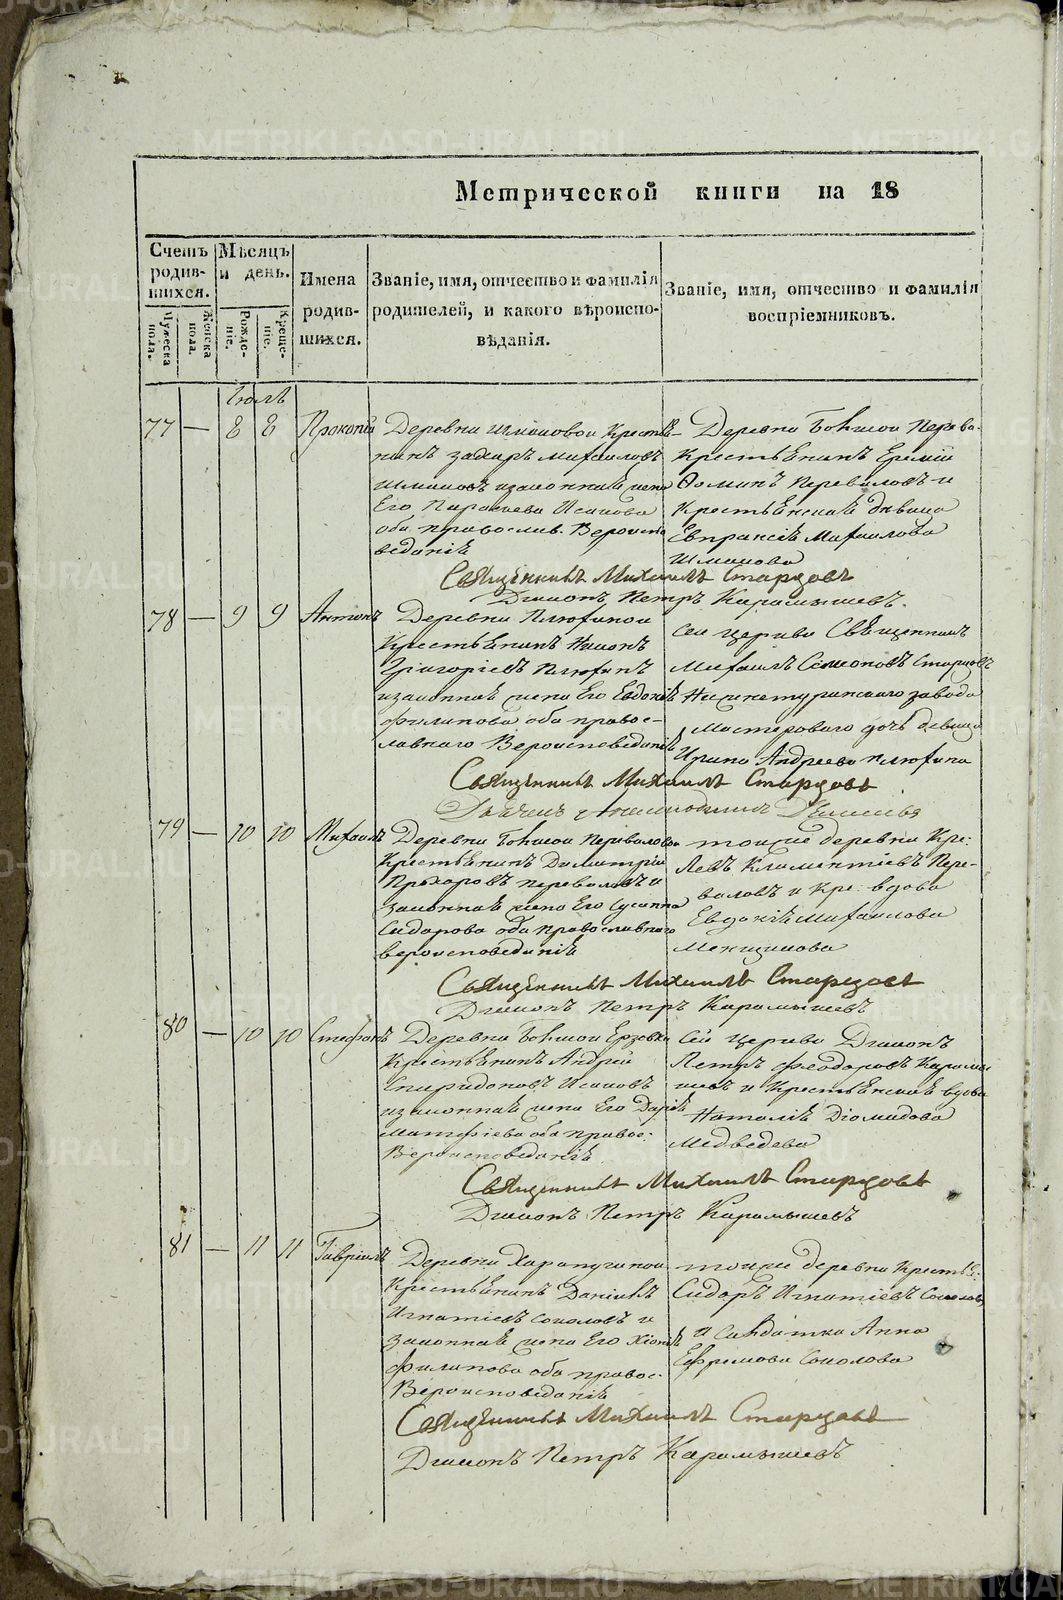 Метрической книги на 18
Счетъ родив- шихся.
Мужеска пола.
Женска пола.
Мѣсяцъ и день.
Рожде- ніе.
Креще- ніе.
Имена родив- шихся.
Званіе, имя, отчество и фамилія
родителей, и какого вѣроиспо-
вѣданія.
Званіе, имя, отчество и фамилія
воспріемниковъ.
Іюль
77 — 8 8 Прокопій
Деревни Шмаковой Крестья-
нинъ Захаръ Михаиловъ
Шмаковъ и законная жена
Его Парасковья Исакова
оба православ. Вероиспо
веданія
Деревни Большой Перева.
Крестьянинъ Еремій
Фоминъ Переваловъ и
Крестьянская дѣвица
Евпраксія Михаилова
Шмакова
Священникъ Михаилъ Старцовъ
Діаконъ Петръ Карамышевъ.
78 — 9 9 Антонъ
Деревни Плюхиной
Крестьянинъ
Григоріевъ Плюхинъ
и законная жена Его Евдокія
Филипова оба право-
славнаго Вероисповеданія
Сей церкви Священникъ
Михаилъ Симоновъ Старцовъ
Нижнетуринскаго завода
Мастероваго дочь дѣвица
Ирина Андреева Плюхина
Священникъ Михаилъ Старцовъ
79 — 10 10 Михаилъ
Деревни Большой Переваловой
Крестьянинъ Димитрій
Прохоровъ Переваловъ и
законная жена Его Сусанна
Сидорова оба православнаго
вероисповеданія
тоиже деревни Кре:
Левъ Климентіевъ Пере-
валовъ и Кре. вдова
Евдокія Михаилова
Меншикова
Священникъ Михаилъ Старцовъ
Діаконъ Петръ Карамышевъ
80 — 10 10 Стефанъ
Деревни Большой Ерзовки
Крестьянинъ Андрей
Спиридоновъ Исаковъ
и законная жена Его Дарія
Матфіева оба правос:
Вероисповеданія
Сей церкви Діаконъ
Петръ Феодоровъ Карамы
шевъ и Крестьянская вдова
Наталія Діомидова
Медведева
Священникъ Михаилъ Старцовъ
Діаконъ Петръ Карамышевъ
81 — 11 11 Гавріилъ
Деревни Харапугиной
Крестьянинъ Даніилъ
Игнатіевъ Соколовъ и
законная жена Его Хіонія
Филипова оба правос.
Вероисповеданія
тоиже деревни Крестья:
Сидоръ Игнатіевъ Соколовъ
и Салдатка Анна
Ефремова Соколова
Священникъ Михаилъ Старцовъ
Діаконъ Петръ Карамышевъ
METRIKI.GASO-URAL.RU